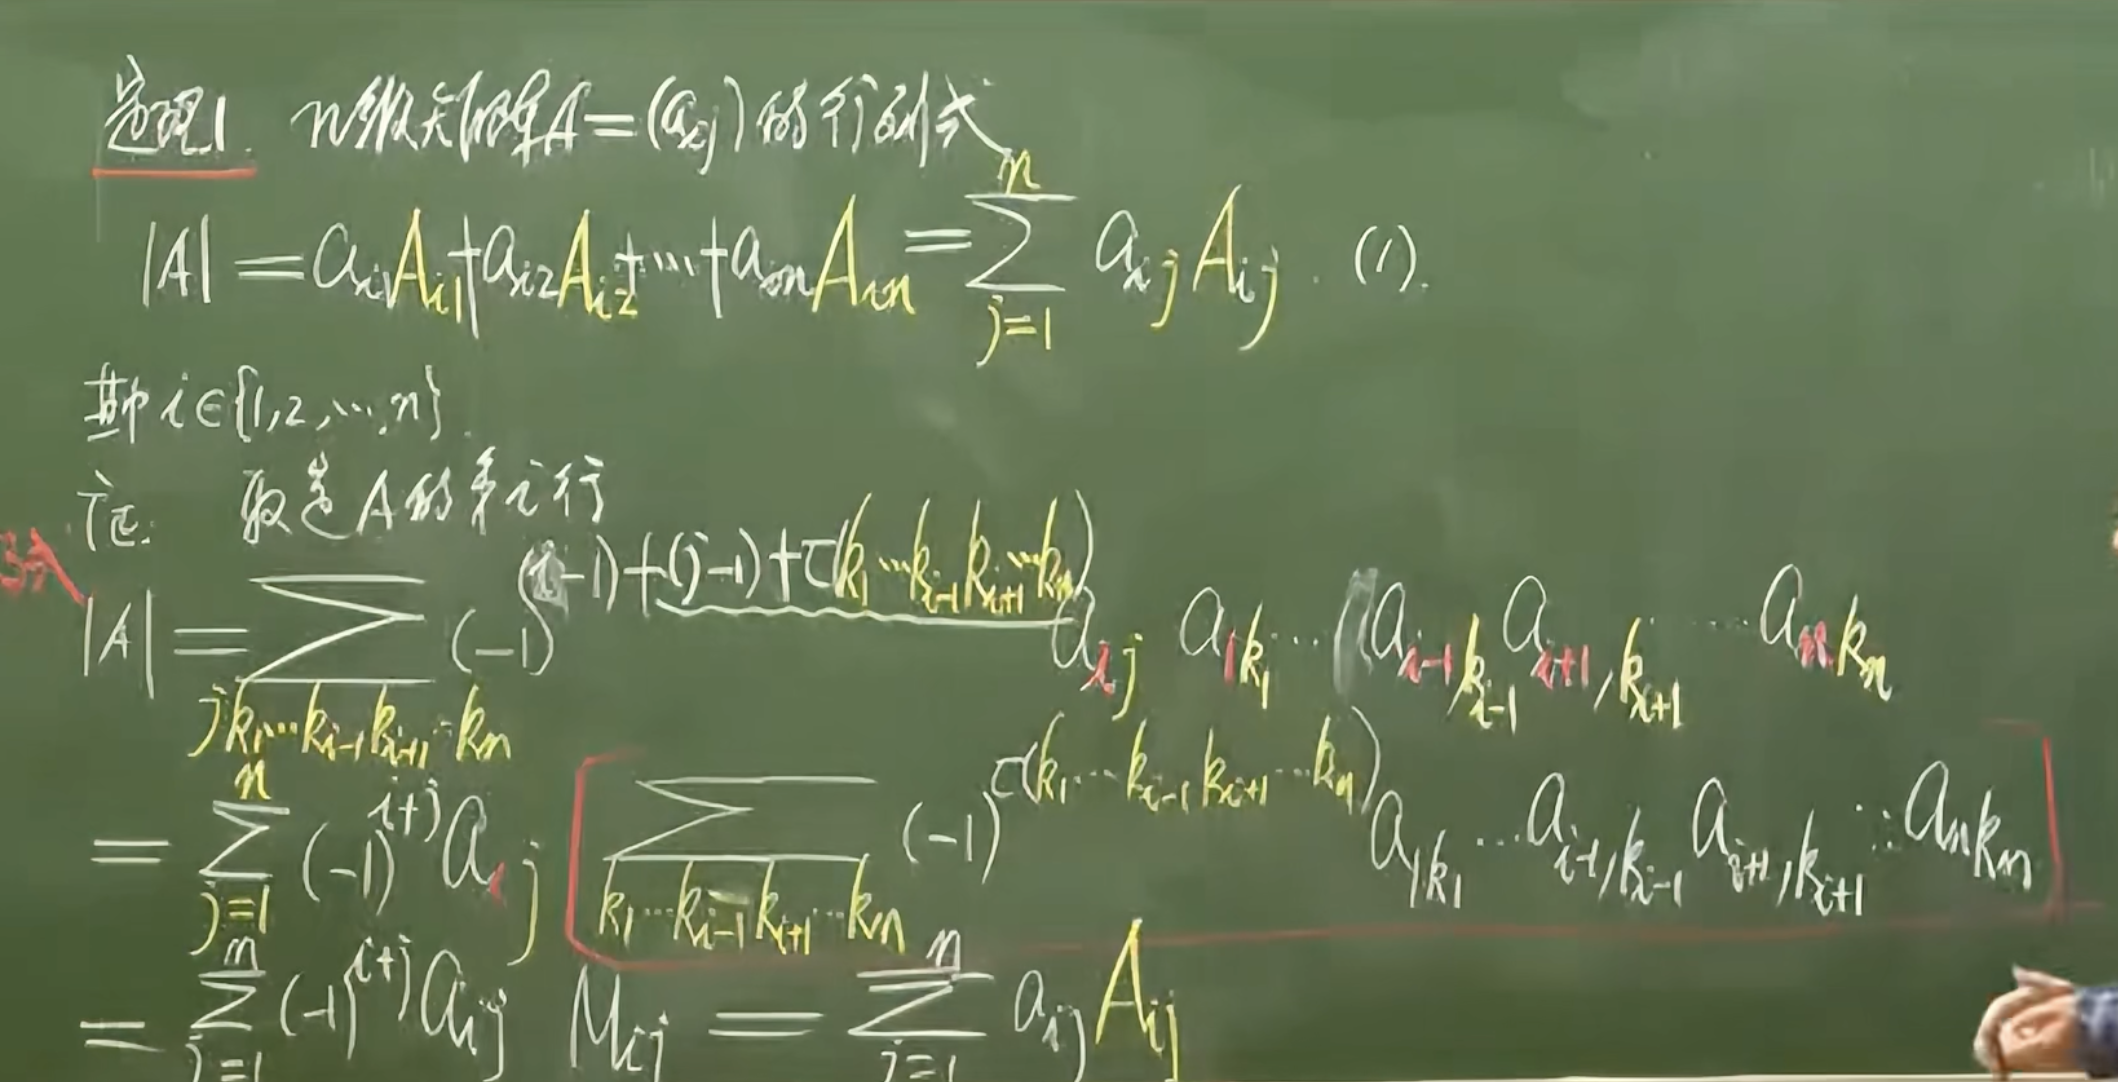 定理1. n级矩阵A=(a_{ij})的行列式
|A| = a_{i1}A_{i1}+a_{i2}A_{i2}+⋯+a_{in}A_{in} = \sum_{j=1}^{n} a_{ij}A_{ij}. (1).
其中 i∈{1,2,⋯,n}.
证: 取定A的第i行
|A| = \sum_{jk_1⋯k_{i-1}k_{i+1}⋯k_n} (-1)^{(i-1)+(j-1)+τ(k_1⋯k_{i-1}k_{i+1}⋯k_n)} a_{ij} a_{1k_1}⋯a_{i-1,k_{i-1}} a_{i+1,k_{i+1}}⋯a_{nk_n}
= \sum_{j=1}^{n} (-1)^{i+j} a_{ij} [\sum_{k_1⋯k_{i-1}k_{i+1}⋯k_n} (-1)^{τ(k_1⋯k_{i-1}k_{i+1}⋯k_n)} a_{1k_1}⋯a_{i-1,k_{i-1}} a_{i+1,k_{i+1}}⋯a_{nk_n}]
= \sum_{j=1}^{n} (-1)^{i+j} a_{ij} M_{ij} = \sum_{j=1}^{n} a_{ij}A_{ij}